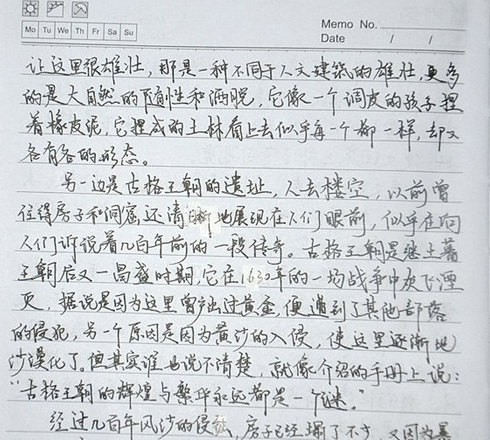 Memo No.
Mo Tu We Th Fr Sa Su
Date / /
让这里很雄壮，那是一种不同于人文建筑的雄壮，更多
的是大自然的随性和洒脱，它像一个调皮的孩子捏
着橡皮泥，它捏成的土林看上去似乎每一个都一样，却又
各有各的形态。
另一边是古格王朝的遗址，人去楼空，以前曾
住得房子和洞窟还清晰地展现在人们眼前，似乎在向
人们诉说着几百年前的一段传奇。古格王朝是继土蕃
王朝后又一昌盛时期，它在1630年的一场战争中灰飞湮
灭，据说是因为这里曾出过黄金，便遭到了其他部落
的侵犯，另一个原因是因为黄沙的入侵，使这里逐渐地
沙漠化了。但其实谁也说不清楚，就像介绍的手册上说：
“古格王朝的辉煌与繁华永远都是一个谜。”
经过几百年风沙的侵蚀，房子已经塌了不少，又因为